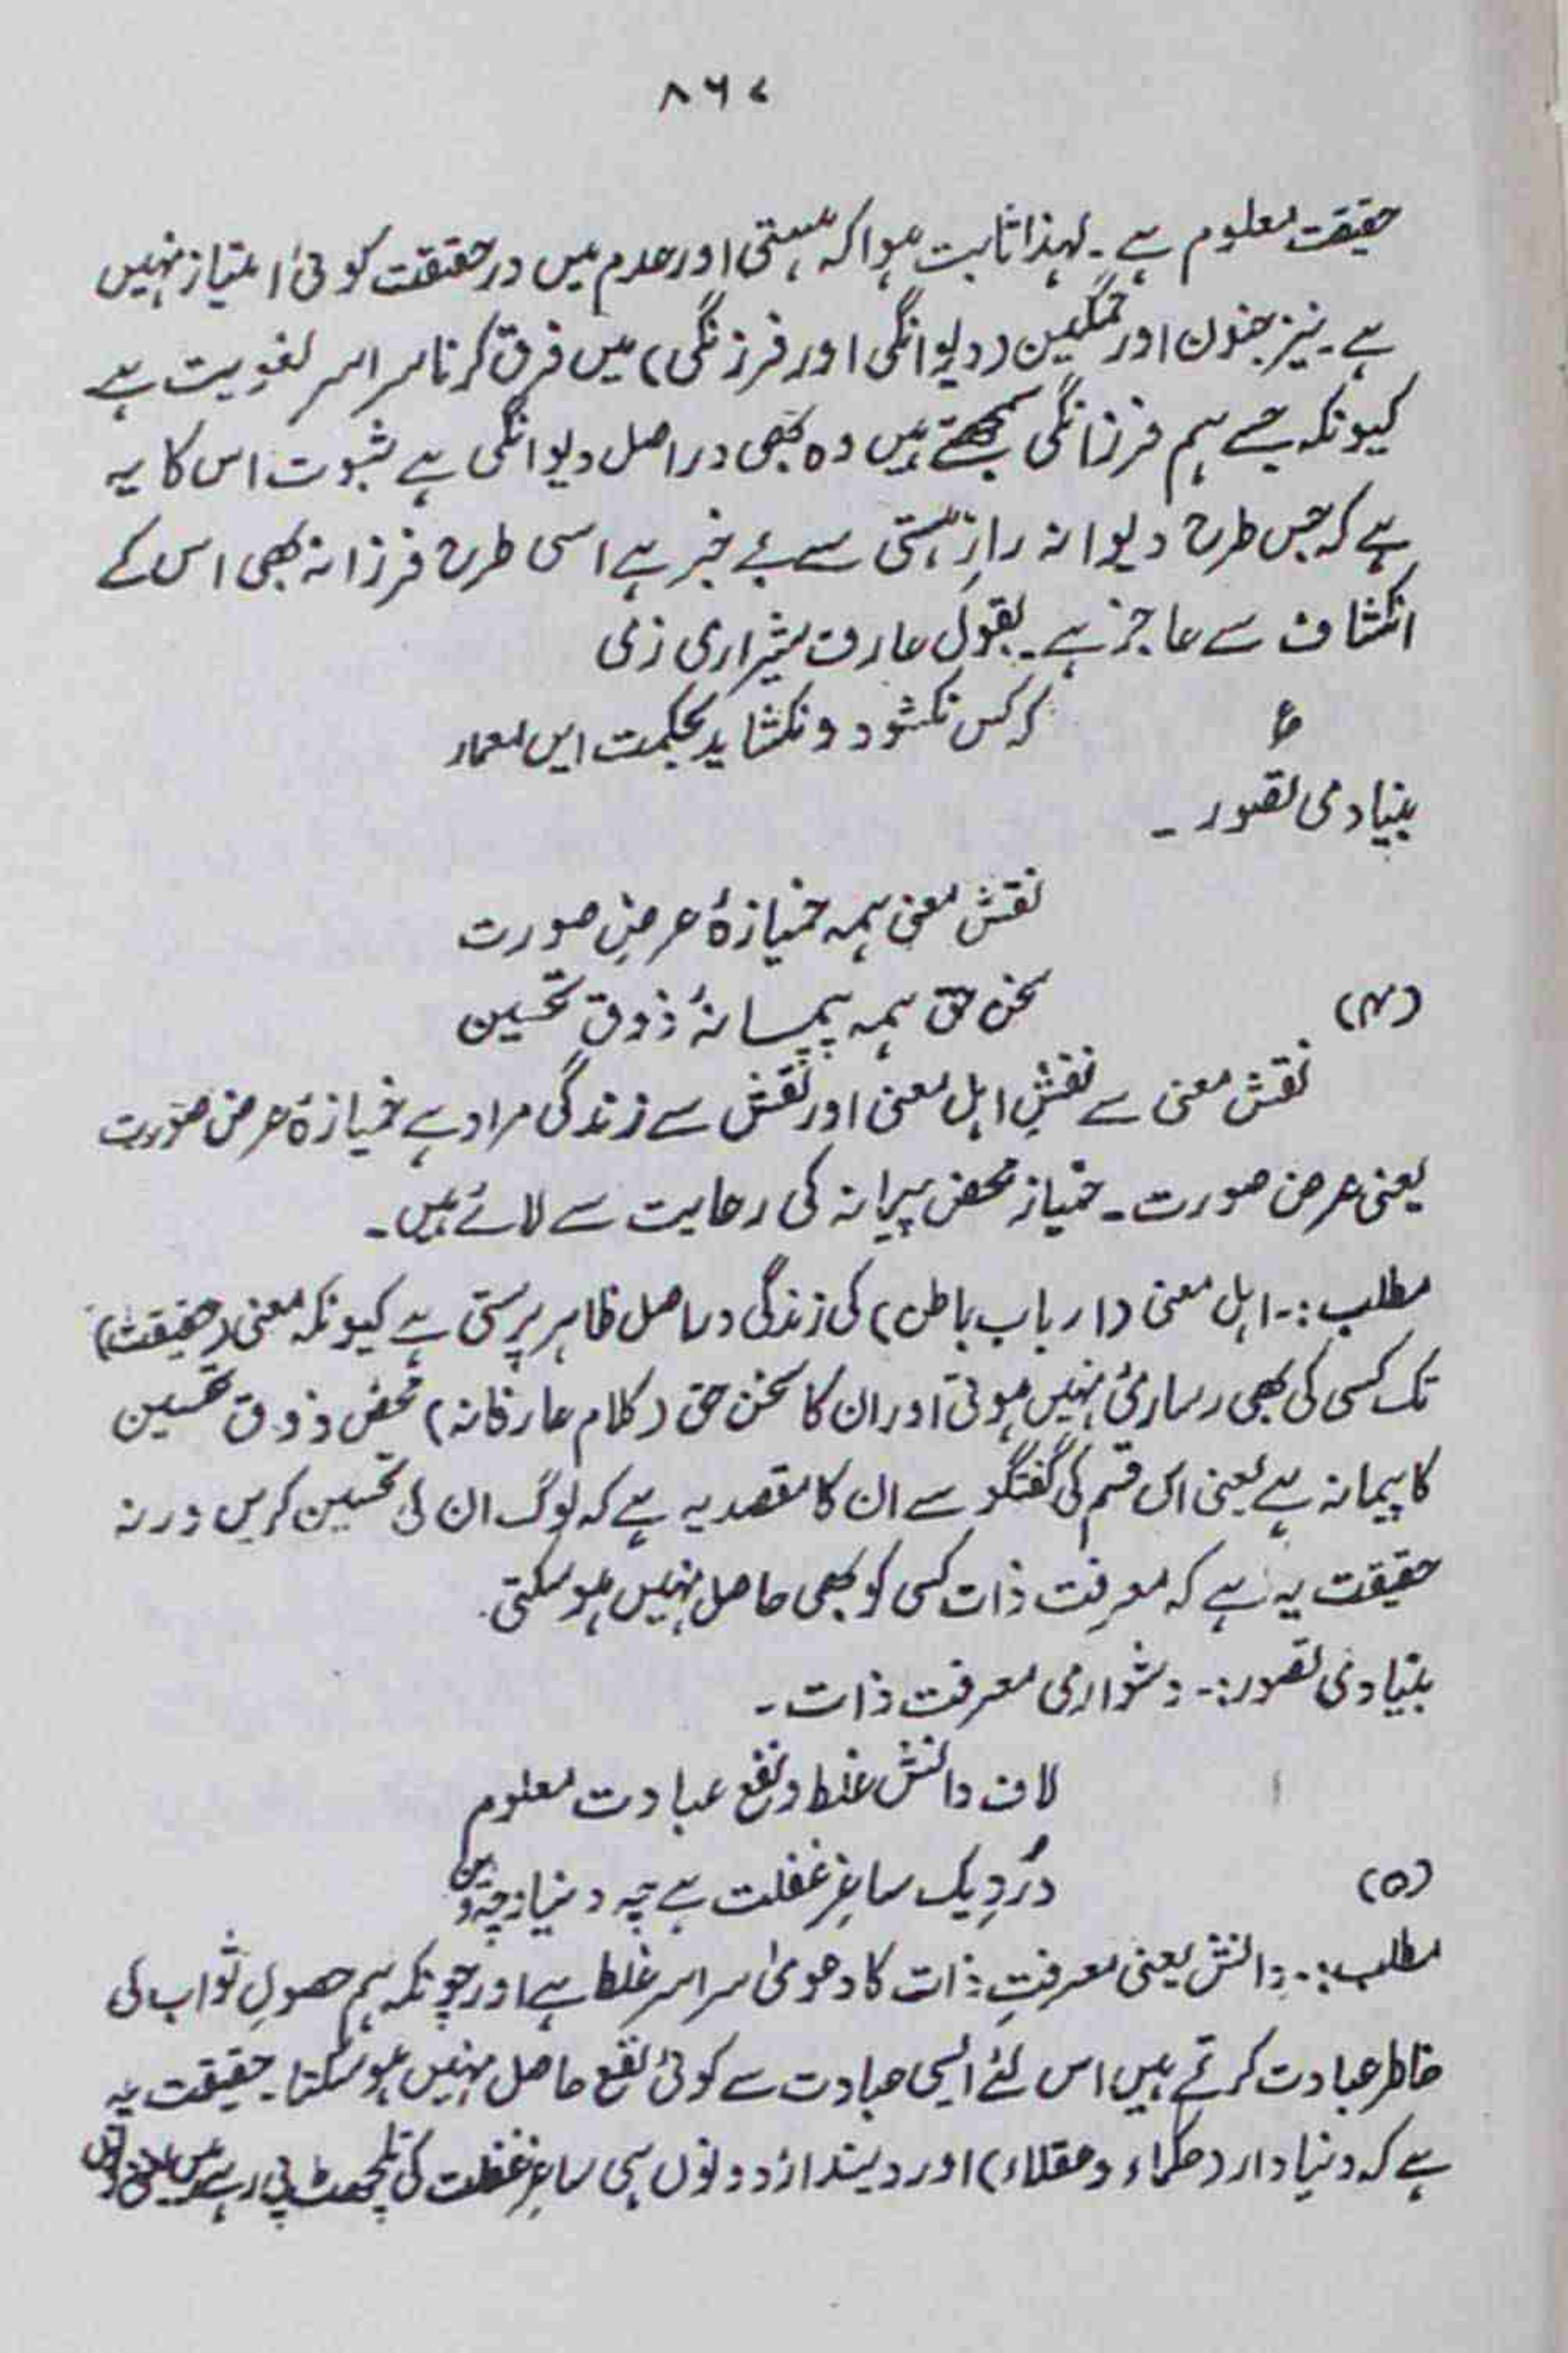 ۸۶۷
حقیقت معلوم ہے۔ لہذا ثابت ہوا کہ ہستی اور عدم میں در حقیقت کوئی امتیاز نہیں
ہے۔ نیز جنون اور تمکین (دیوانگی اور فرزنگی) میں فرق کرنا سراسر لغویت ہے
کیونکہ جسے ہم فرزانگی سمجھتے ہیں وہ بھی در اصل دیوانگی ہے ثبوت اس کا یہ
ہے کہ جس طرح دیوانہ رازِ ہستی سے بے خبر ہے اسی طرح فرزانہ بھی اس کے
انکشاف سے عاجز ہے۔ بقولِ عارف شیرازی
ع کہ کس نکشود و نکشاید بحکمت ایں معمار
بنیادی تصور۔
نقش معنی ہمہ خمیازۂ عرضِ صورت
(۴) سخن حق ہمہ پیمانۂ ذوق تحسین
نقش معنی سے نقشِ اہل معنی اور نقش سے زندگی مراد ہے خمیازۂ عرض صورت
یعنی عرض صورت۔ خمیاز محض پیمانہ کی رعایت سے لائے ہیں۔
مطلب:۔ اہل معنی (ارباب باطن) کی زندگی دراصل ظاہر پرستی ہے کیونکہ معنی (حقیقت)
تک کسی کی بھی رسائی نہیں ہوتی اور ان کا سخن حق (کلام عارفانہ) محض ذوق تحسین
کا پیمانہ ہے یعنی اس قسم کی گفتگو سے ان کا مقصد یہ ہے کہ لوگ ان کی تحسین کریں ورنہ
حقیقت یہ ہے کہ معرفت ذات کسی کو بھی حاصل نہیں ہو سکتی۔
بنیادی تصور:۔ دشواری معرفت ذات۔
لاف دانش غلط و نفع عبادت معلوم
(۵) دُردِ یک ساغرِ غفلت ہے چہ دنیا و چہ دین
مطلب:۔ دانش یعنی معرفتِ ذات کا دعویٰ سراسر غلط ہے اور چونکہ ہم حصولِ ثواب کی
خاطر عبادت کرتے ہیں اس لئے ایسی عبادت سے کوئی نفع حاصل نہیں ہو سکتا۔ حقیقت یہ
ہے کہ دنیا دار (حکماء و عقلاء) اور دیندار دونوں ہی ساغرِ غفلت کی تلچھٹ پی رہے ہیں یعنی دونوں